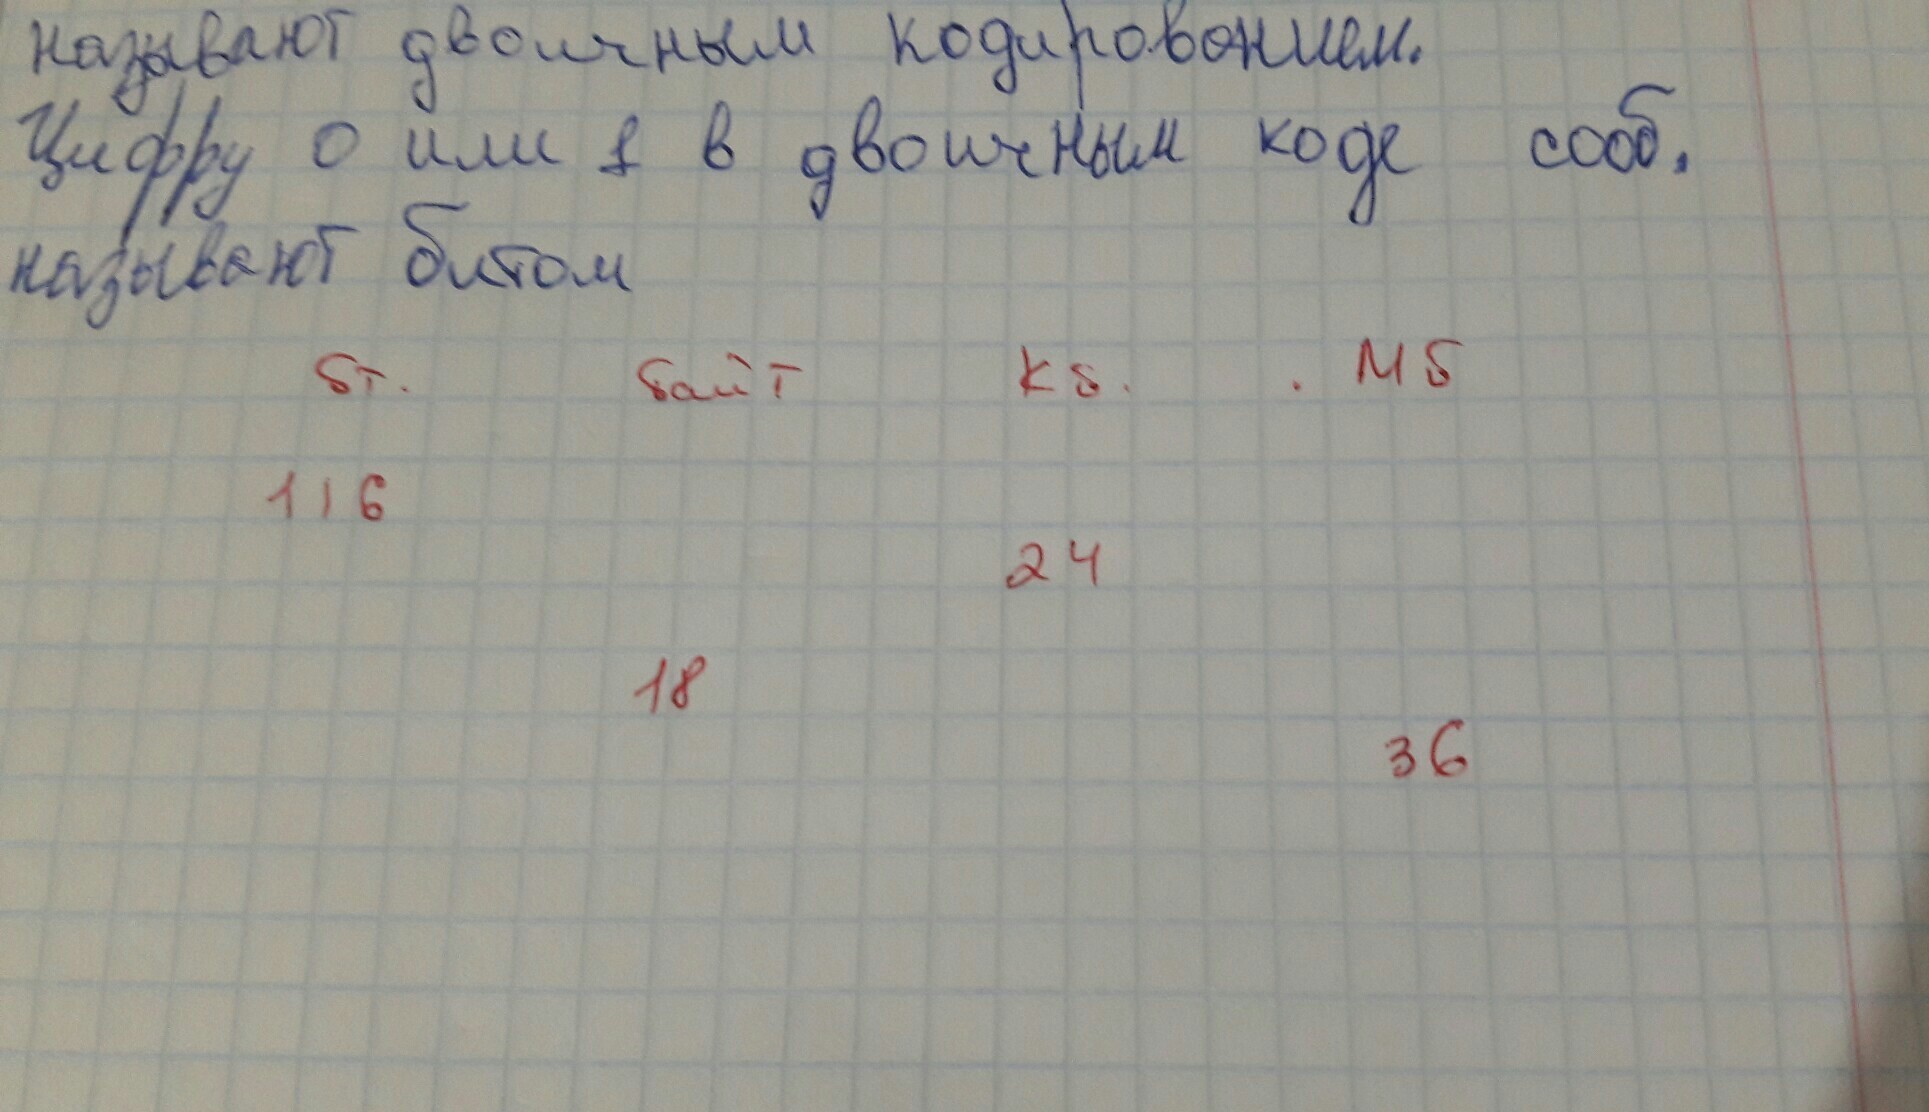 называют двоичным кодированием.
Цифру 0 или 1 в двоичным коде сооб.
называют битом
бт. байт Кб. . МБ
116
24
18
36